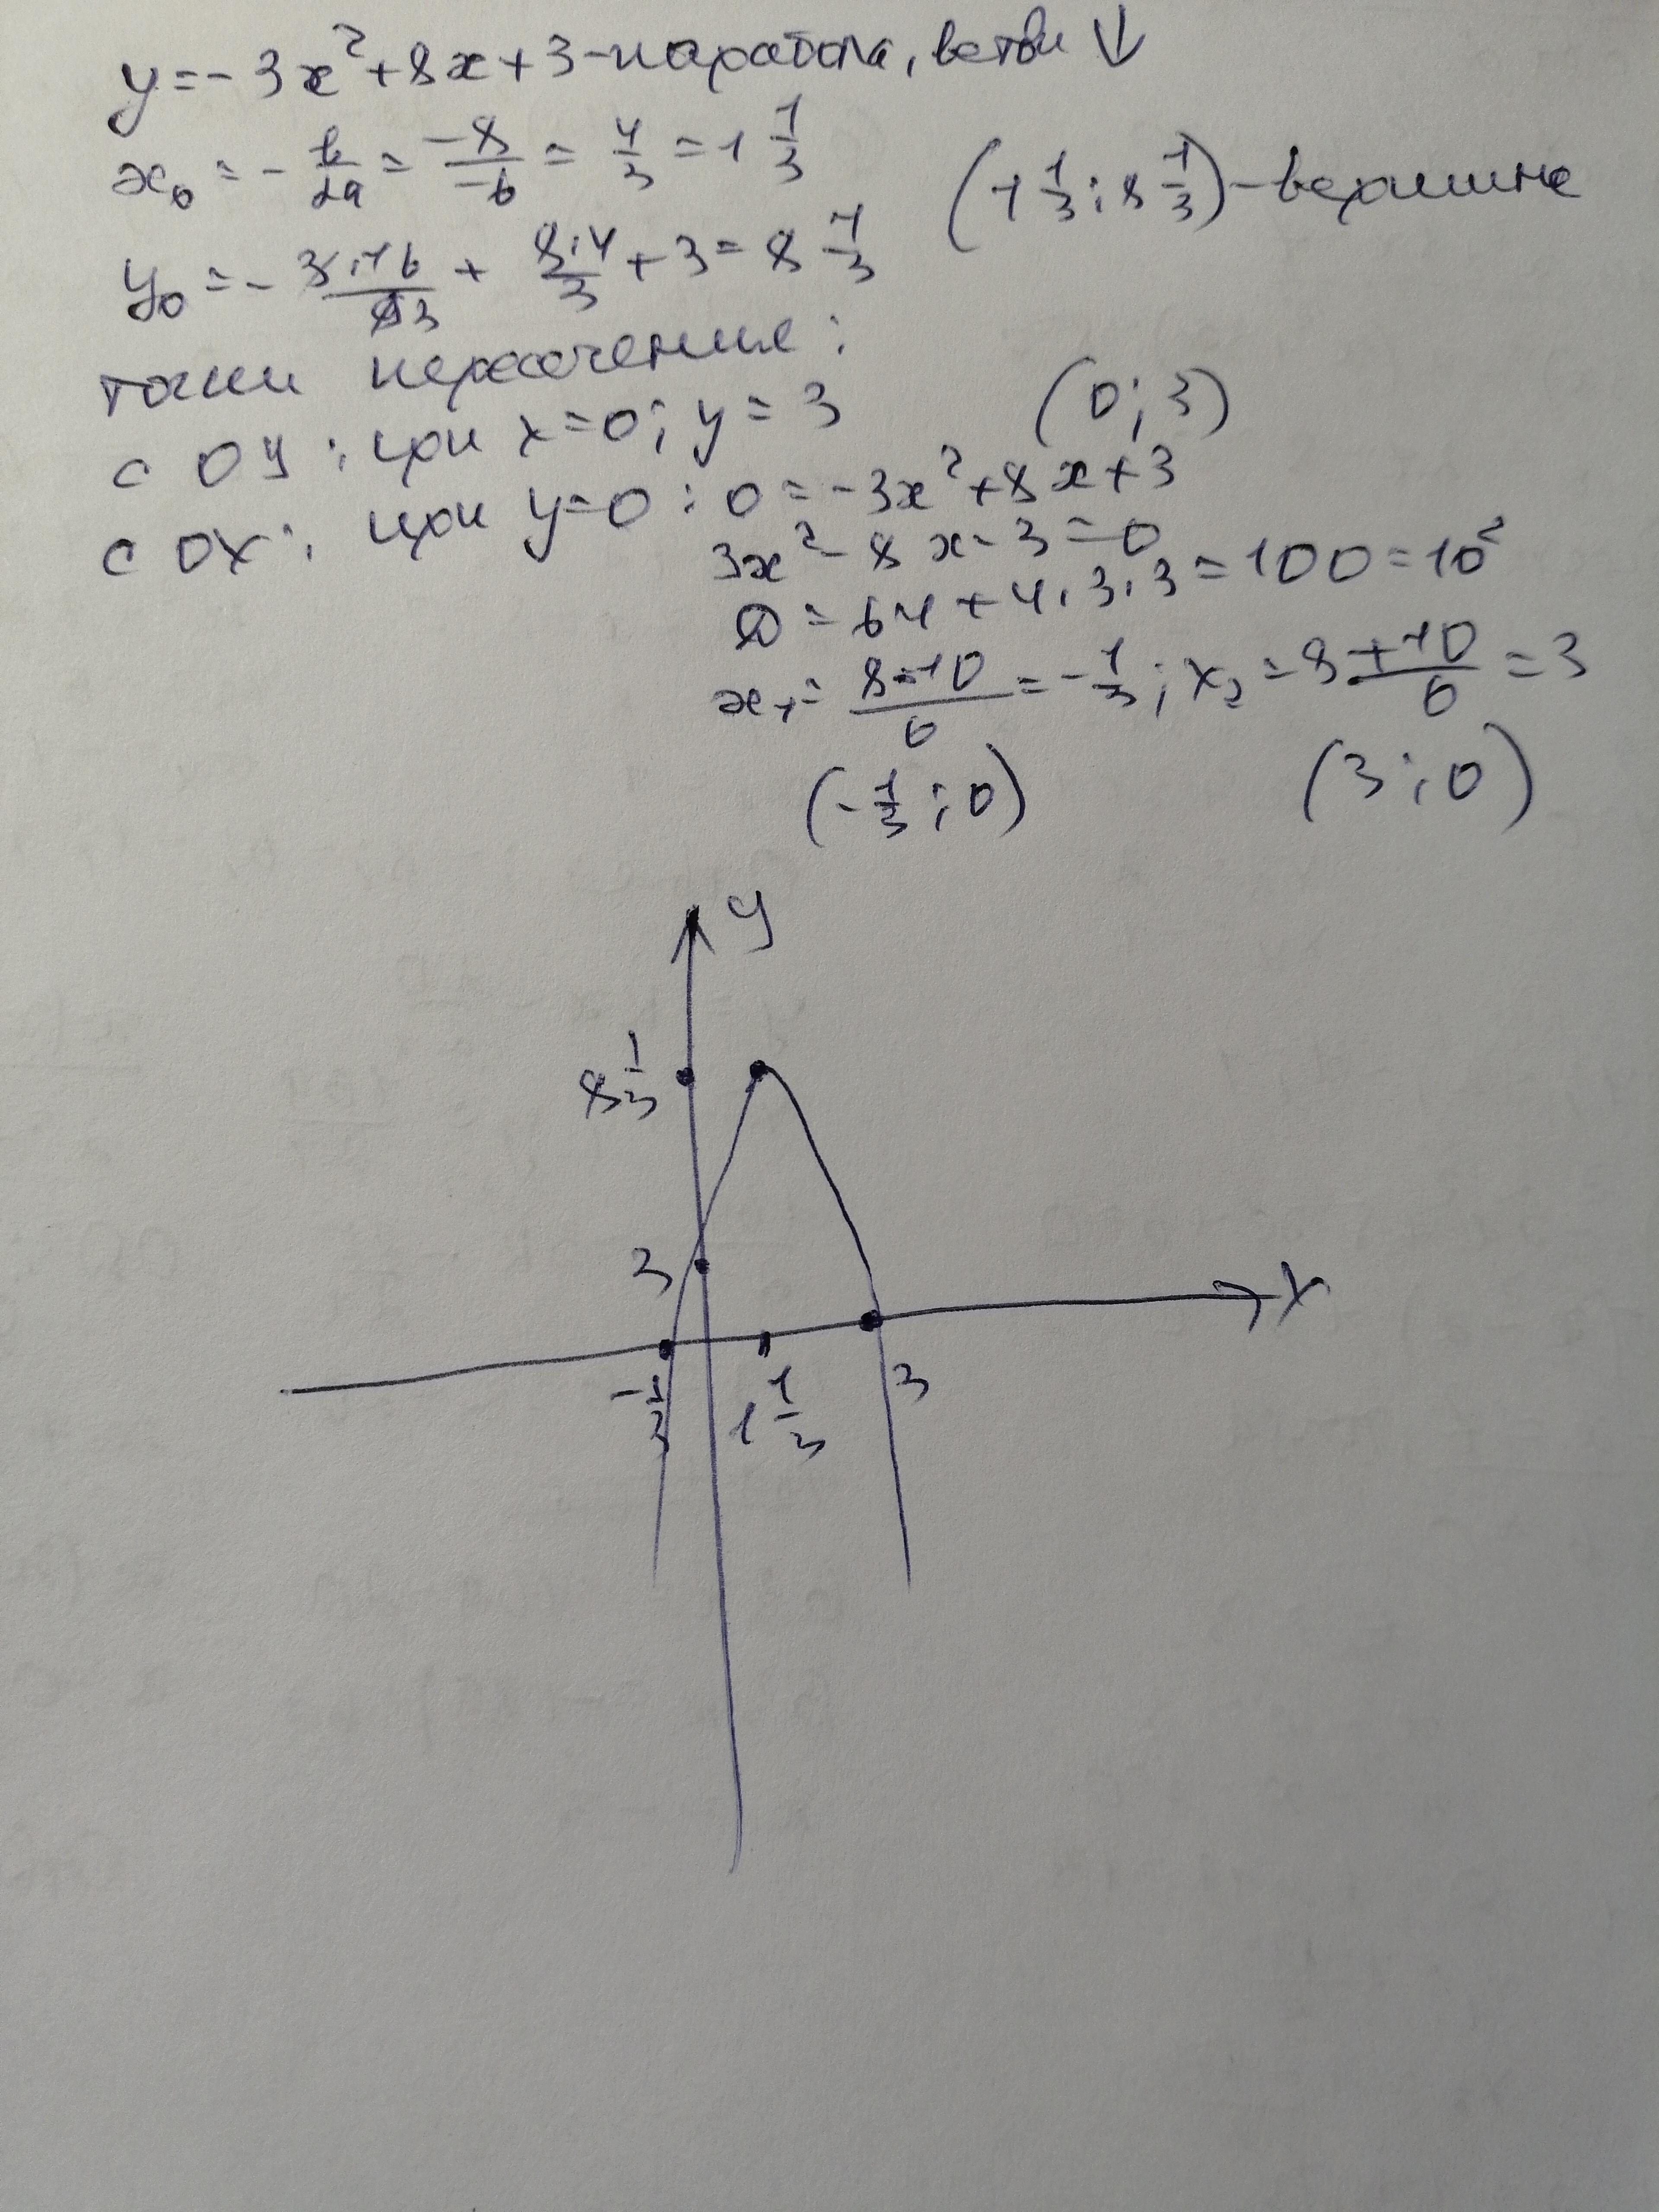 y = -3x² + 8x + 3 - парабола, ветви ↓
x₀ = -b/2a = -8/-6 = 4/3 = 1 1/3 (1 1/3; 8 1/3) - вершина
y₀ = - 3·16/93 + 8·4/3 + 3 = 8 1/3
точки пересечения:
с OY: при x=0; y=3 (0; 3)
с OX: при y=0: 0 = -3x² + 8x + 3
3x² - 8x - 3 = 0
D = 64 + 4·3·3 = 100 = 10²
x₁ = 8-10/6 = -1/3; x₂ = 8+10/6 = 3
(-1/3; 0) (3; 0)
y
8 1/3
3
x
-1/3 1 1/3 3